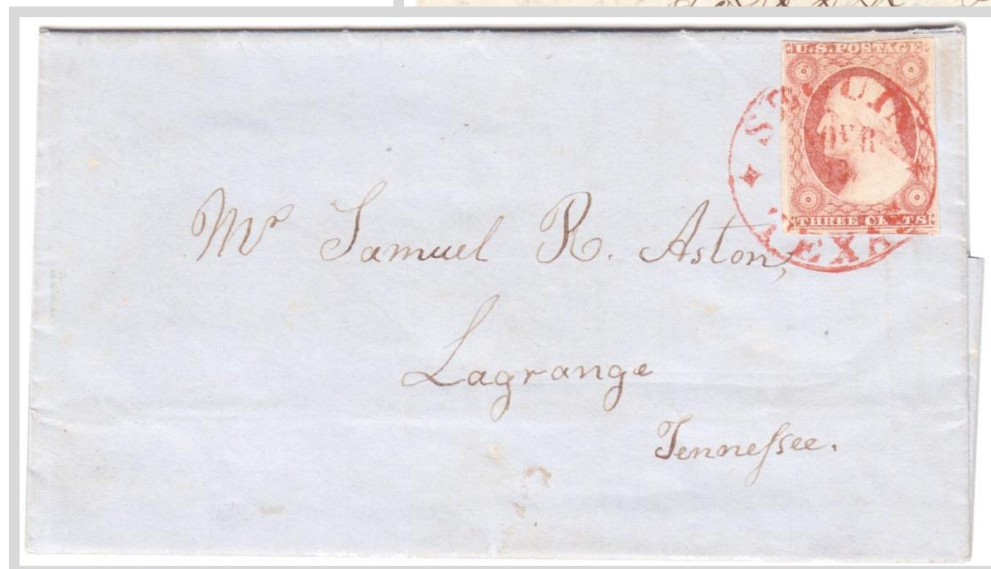 U.S. POSTAGE
THREE CENTS
TEXAS
Mr Samuel R. Aston,
Lagrange
Tenneſsee.